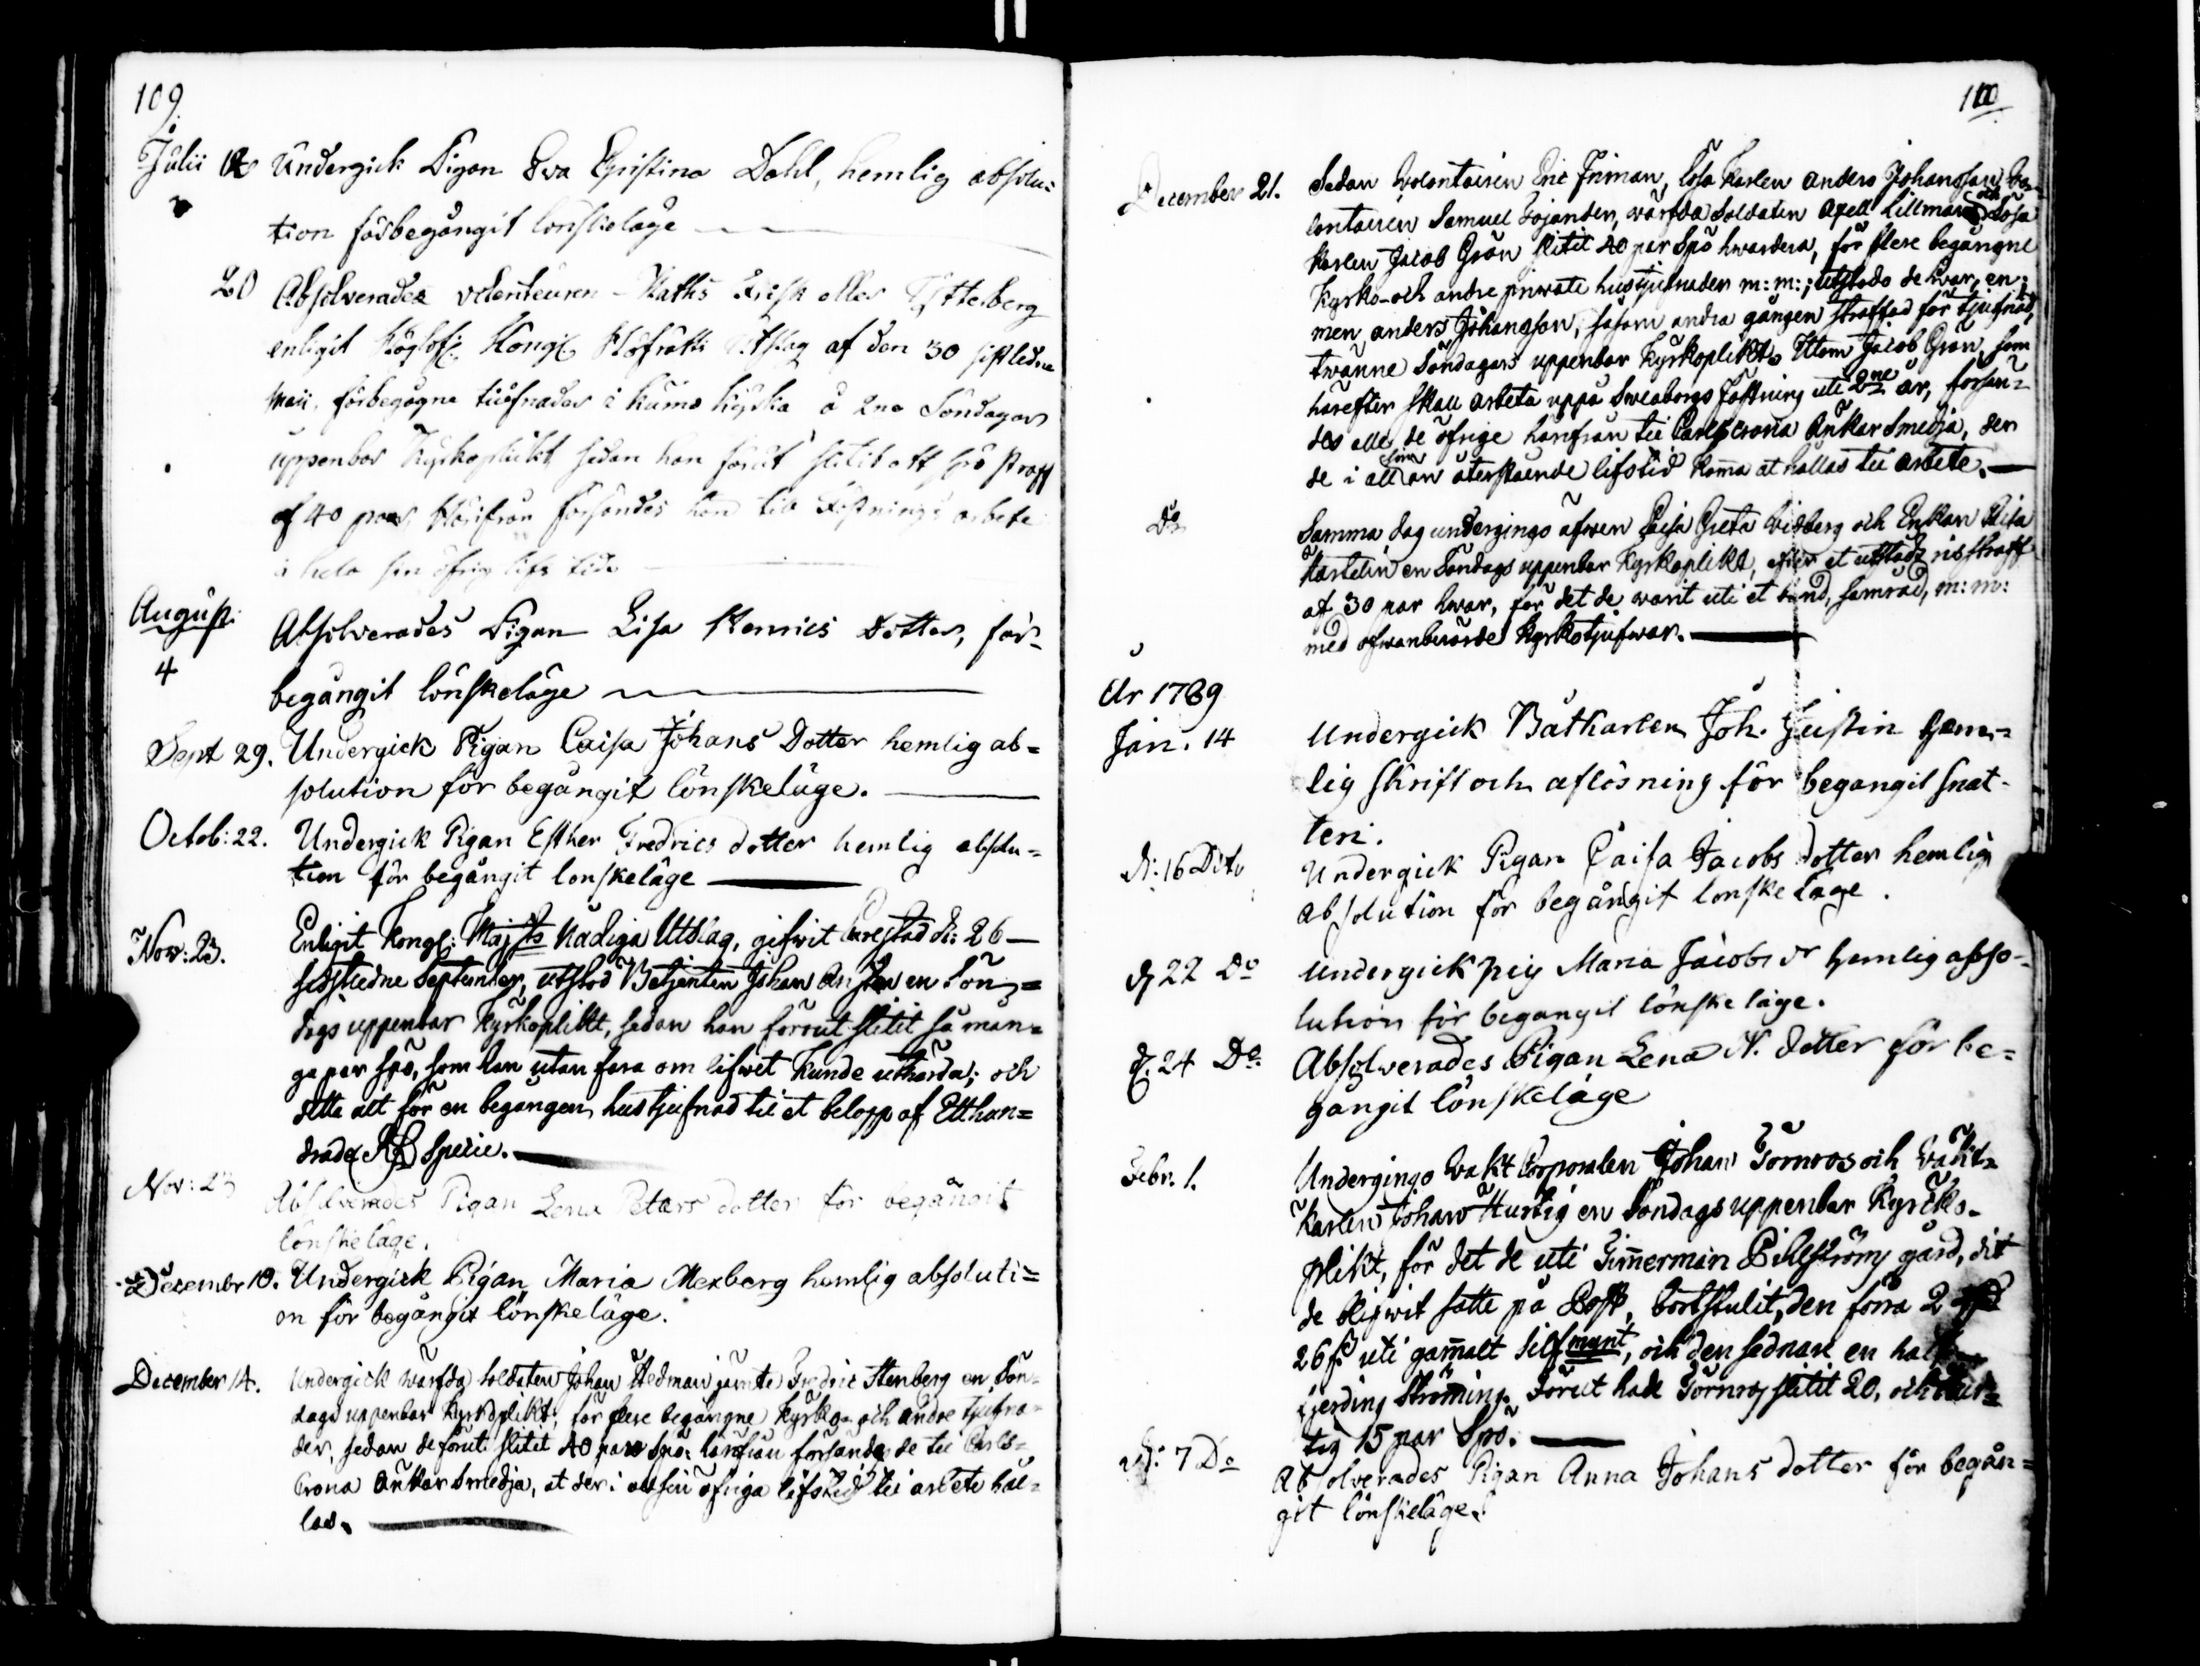 109
Julii 12 Undergick Pigan Eva Christina Dahl, hemlig absolu=
tion förbegångit lönskeläge
20 Absolverades volenteuren Maths Frisk eller Ytterberg
enligit Höglofl. Kongl. Hofrätts Utslag af den 30 sistledne
Maii, förbegågne tiufnader i Kumo Kyrka å 2ne Söndagar
uppenbar Kyrkoplickt sedan han förut slitit ett spö straff
af 40 par. Härifrån försändes han till Fästnings arbete
i hela sin öfrig lifs tid
August:
4
Absolverades Pigan Lisa Henrics Dotter, för
begångit lönskeläge
Sept 29. Undergick Pigan Caisa Johans Dotter hemlig ab=
solution för begångit lönskeläge.
Octob: 22. Undergick Pigan Esther Fredrics dotter hemlig absolu=
tion för begångit lönskeläge
Nov: 23. Enligit Kongl: Majts Nådiga Utslag, gifwit Carlstad d: 26
sistledne September, utstod Betjenten Johan en Sön=
dags uppenbar Kyrkoplikt, sedan han förrut slitit så mån=
ga par spö, som han utan fara om lifwet kunde uthärda; och
detta alt för en begången hustjufnad til et belopp af Etthun=
drade Rd Specie.
Nov: 23 Absolverades Pigan Lena Peters dotter för begångit
lönskeläge.
December 10. Undergick Pigan Maria Mexberg hemlig absoluti=
on för begångit lönskeläge.
December 14. Undergick wärfda soldaten Johan Hedman jämte Fredric Stenberg en Sön=
dags uppenbar Kyrkoplikt, för flere begångne Kyrko- och andre tjufna=
der, sedan de förut slitit 40 par Spö: härifrån försändes de til Carls=
Crona Ankar Smedja, at der i all sin öfriga lifstid til arbete hål=
las.
110
December 21. Sedan Volontairen Eric Friman, Lösa Karlen Anders Johansson, Vo=
lontairen Samuel Gojander, wärfda Soldaten Axell Lillman och Lösa
Karlen Jacob Grön slitit 40 par Spö hwardera, för flere begångne
Kyrko- och andre private hustjufnader m: m:; utstodo de hwar, en;
men Anders Johansson, såsom andra gången straffad för tjufnad,
twänne Söndagars uppenbar Kyrkoplikt. Utom Jacob Grön, som
härefter skall arbeta uppå Sweaborgs Fästning uti 2ne år, försän=
des alle de öfrige härifrån til Carlscrona Ankar Smedja, der
de i all sin återstående lifstid komma at hållas til arbete.
Do Samma dag undergingo äfwen Caisa Greta Widberg och Enkan Lisa
Kastelin en Söndags uppenbar Kyrkoplikt, efter et utstådt risstraff
af 30 par hwar, för det de warit uti et band, samråd, m: m:
med ofwanberörde Kyrkotjufwar.
År 1789
Jan. 14 Undergick Båtkarlen Joh. Justin hem=
lig skrift och aflösning för begångit snat=
teri.
d: 16 Dito Undergick Pigan Caisa Jacobs dotter hemlig
absolution för begångit lönskeläge.
d 22 Do Undergick pig Maria Jacobs dr hemlig abso=
lution för begångit lönskeläge.
d. 24 Do: Absolverades Pigan Lena N. dotter för be=
gångit lönskeläge
Febr. 1. Undergingo Vakt Corporalen Johan Törnros och Vakt=
Karlen Johan Hurtig en Söndags uppenbar Kyrko=
plikt, för det de uti Timmerman Pihlströms gård, dit
de blifwit satte på Post, bortstulit, den förra 2
26 s. uti gammalt Silfmynt, och den sednare en half
fjerding Strömming. Förut hade Törnros slitit 20, och Hur=
tig 15 par Spö.
d: 7 Do Absolverades Pigan Anna Johans dotter för begån=
git lönskeläge.